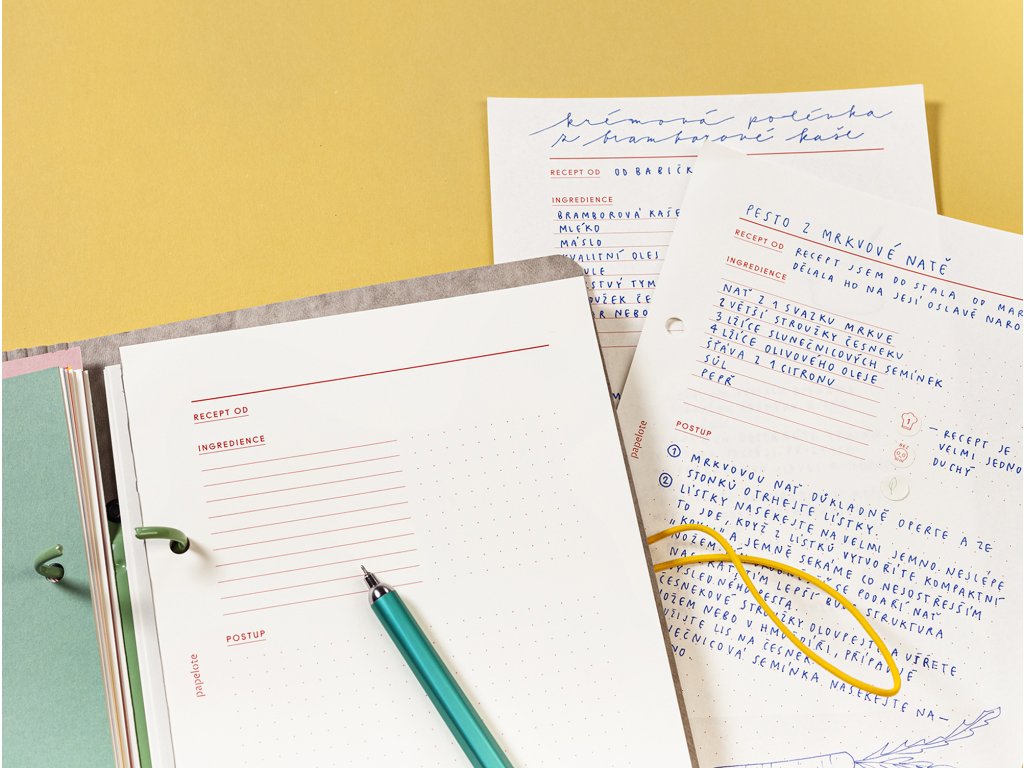 krémová polévka
z bramborové kaše
RECEPT OD
OD BABIČK
INGREDIENCE
BRAMBOROVÁ KAŠE
MLÉKO
MÁSLO
KVALITNÍ OLEJ
PESTO Z MRKVOVÉ NATĚ
RECEPT OD
RECEPT JSEM DOSTALA OD MAR
DĚLALA HO NA JEJÍ OSLAVĚ NARO
INGREDIENCE
NAŤ Z 1 SVAZKU MRKVE
2 VĚTŠÍ STROUŽKY ČESNEKU
3 LŽÍCE SLUNEČNICOVÝCH SEMÍNEK
4 LŽÍCE OLIVOVÉHO OLEJE
ŠŤÁVA Z 1 CITRONU
SŮL
PEPŘ
1
BEZ
– RECEPT JE
VELMI JEDNO
DUCHÝ
papelote
POSTUP
1 MRKVOVOU NAŤ DŮKLADNĚ OPERTE A ZE
STONKŮ OTRHEJTE LÍSTKY.
2 LÍSTKY NASEKEJTE NA VELMI JEMNO. NEJLÉPE
TO JDE, KDYŽ Z LÍSTKŮ VYTVOŘÍTE KOMPAKTNÍ
A JEMNĚ SEKÁME CO NEJOSTŘEJŠÍM
NOŽEM.
SE PODAŘÍ NAŤ
LEPŠÍ BUDE STRUKTURA
VÝSLEDNÉHO PESTA.
ČESNEKOVÉ STROUŽKY OLOUPEJTE A UTŘETE
NOŽEM NEBO V HMOŽDÍŘI, PŘÍPADNĚ
UŽIJTE LIS NA ČESNEK.
SEMÍNKA NASEKEJTE NA–
RECEPT OD
INGREDIENCE
POSTUP
papelote